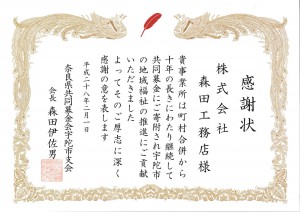 感謝状
株式会社
森田工務店様
貴事業所は町村合併から
十年の長きにわたり継続して
共同募金にご寄附され宇陀市
の地域福祉の推進にご貢献
いただきました
よってそのご厚志に深く
感謝の意を表します
平成二十八年二月一日
奈良県共同募金会宇陀市支会
会長 森田伊佐男